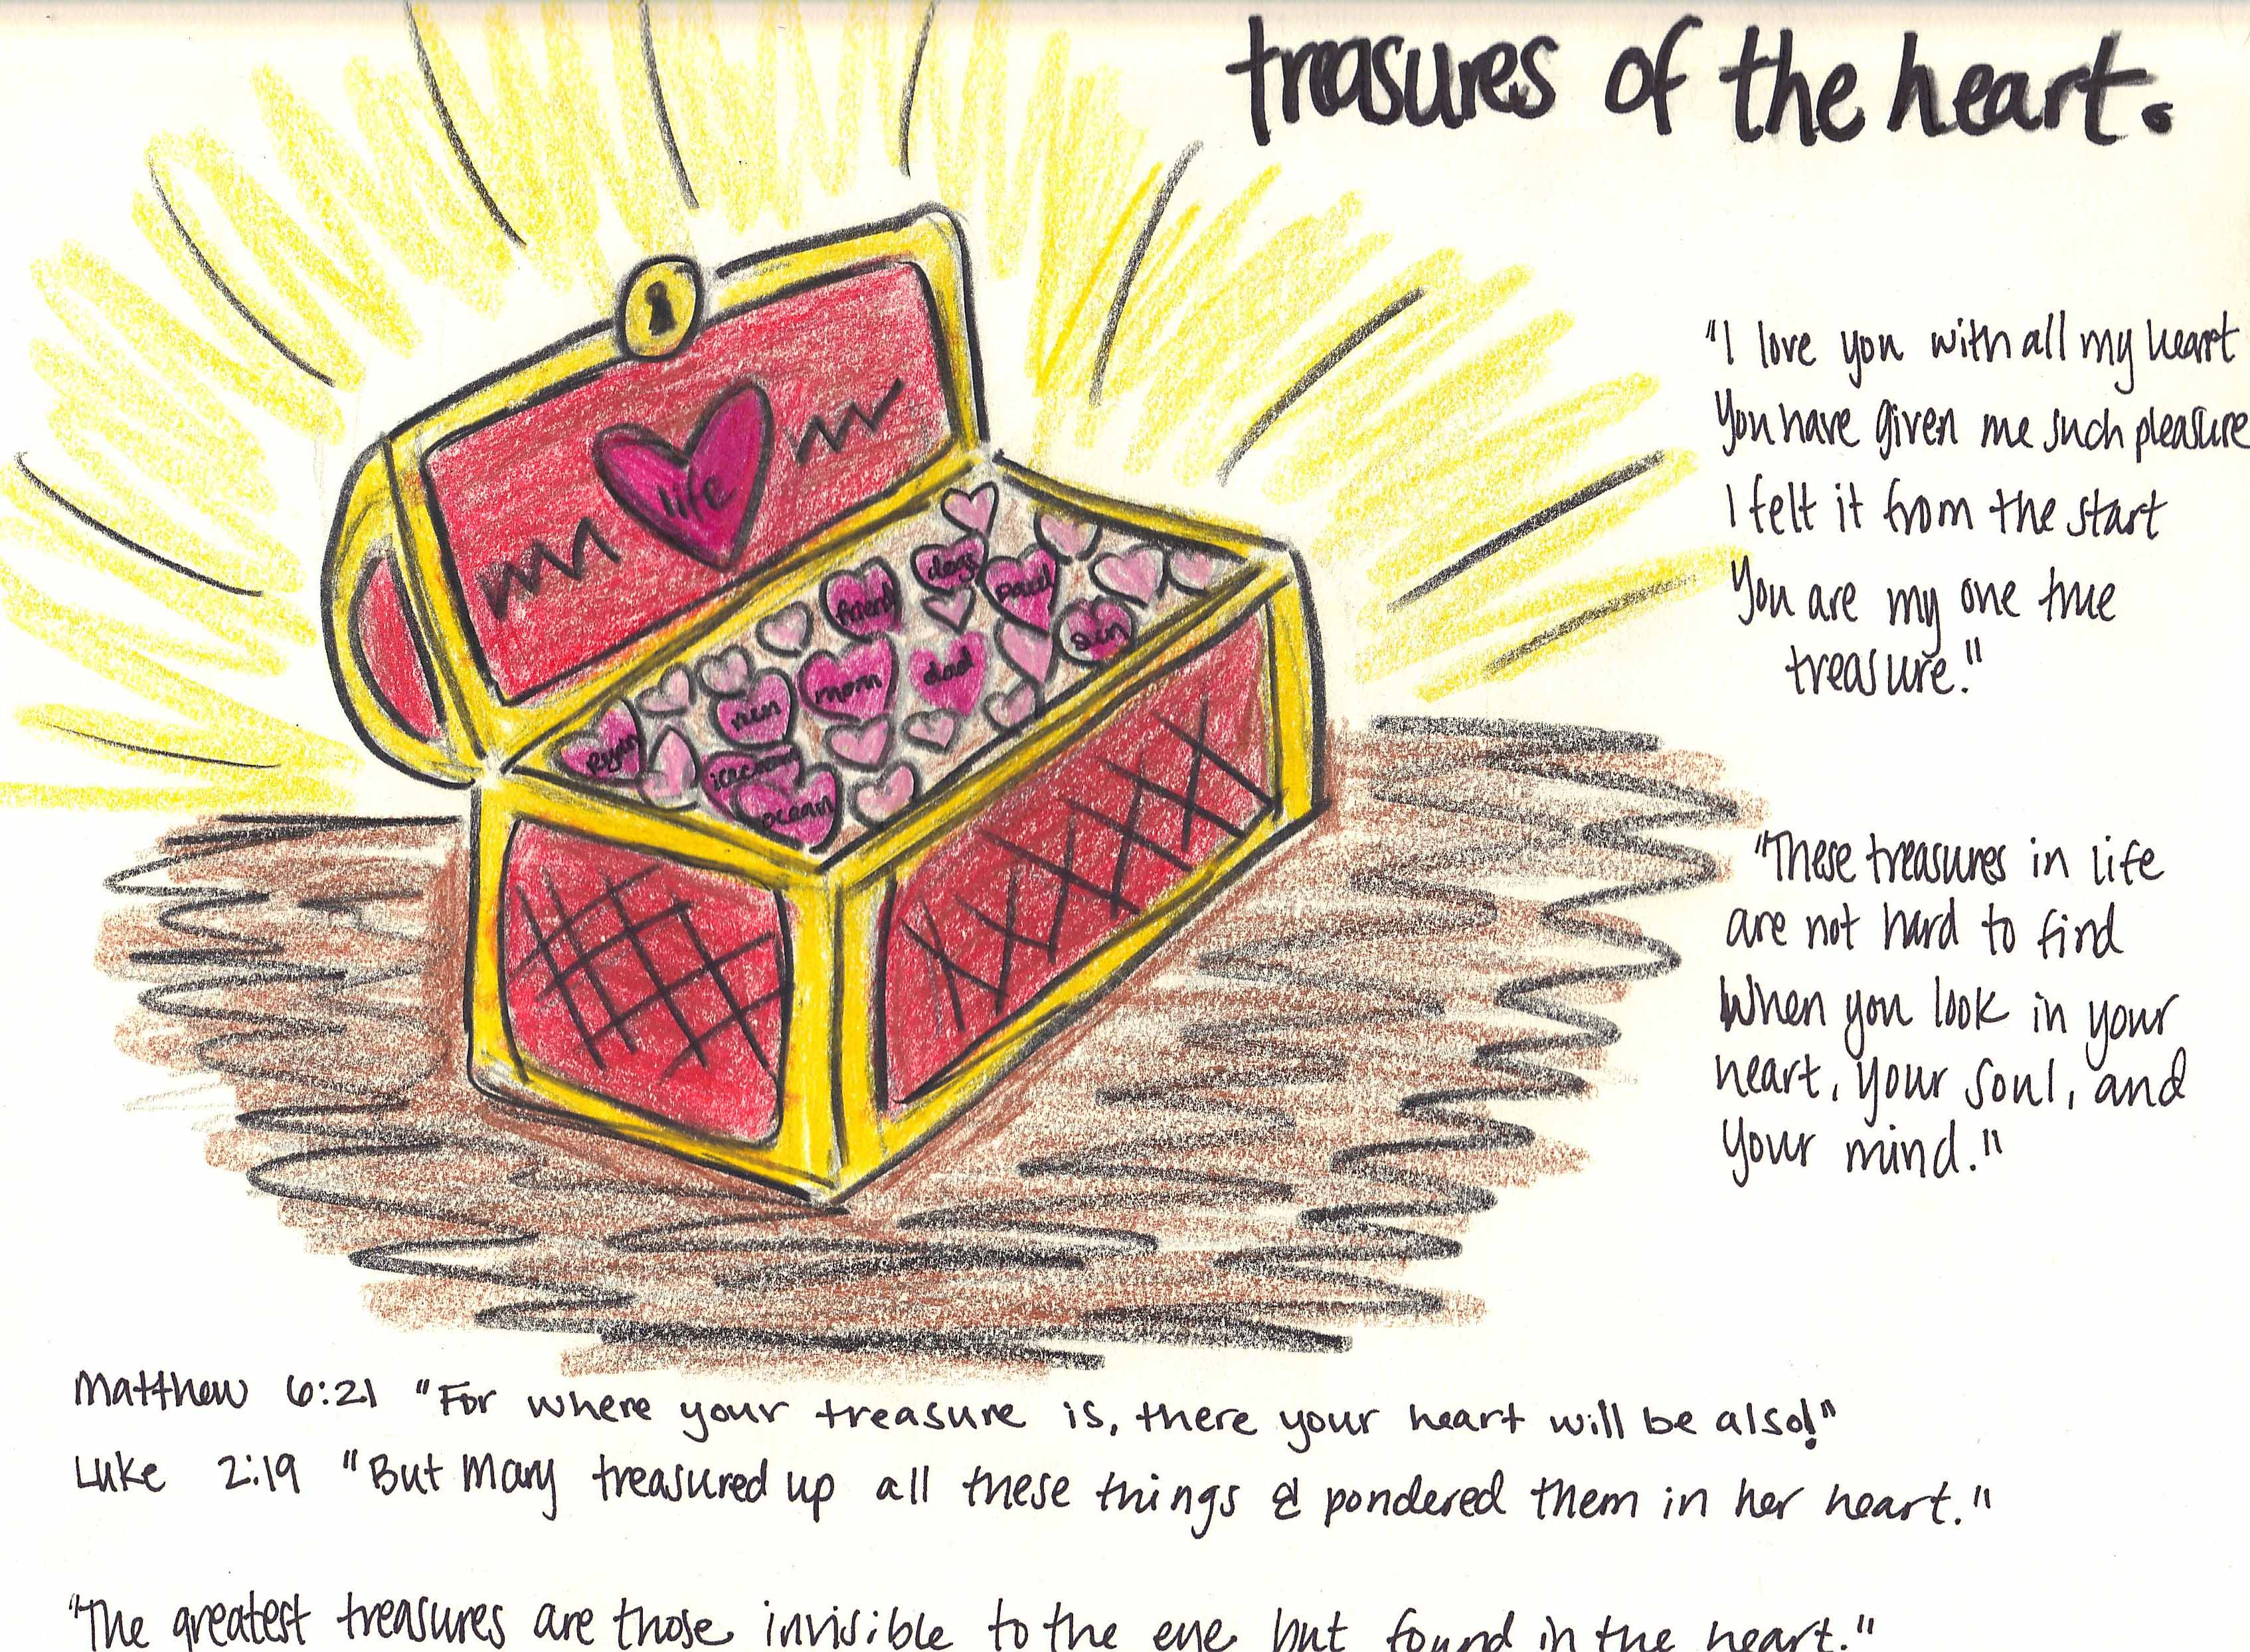 treasures of the heart.
"I love you with all my heart
You have given me such pleasure
I felt it from the start
You are my one true
treasure."
"These treasures in life
are not hard to find
When you look in your
heart, your soul, and
your mind."
life
dogs
friend
mom
dad
ryan
icecream
ocean
Matthew 6:21 "For where your treasure is, there your heart will be also!"
Luke 2:19 "But Mary treasured up all these things & pondered them in her heart."
"The greatest treasures are those invisible to the eye but found in the heart."